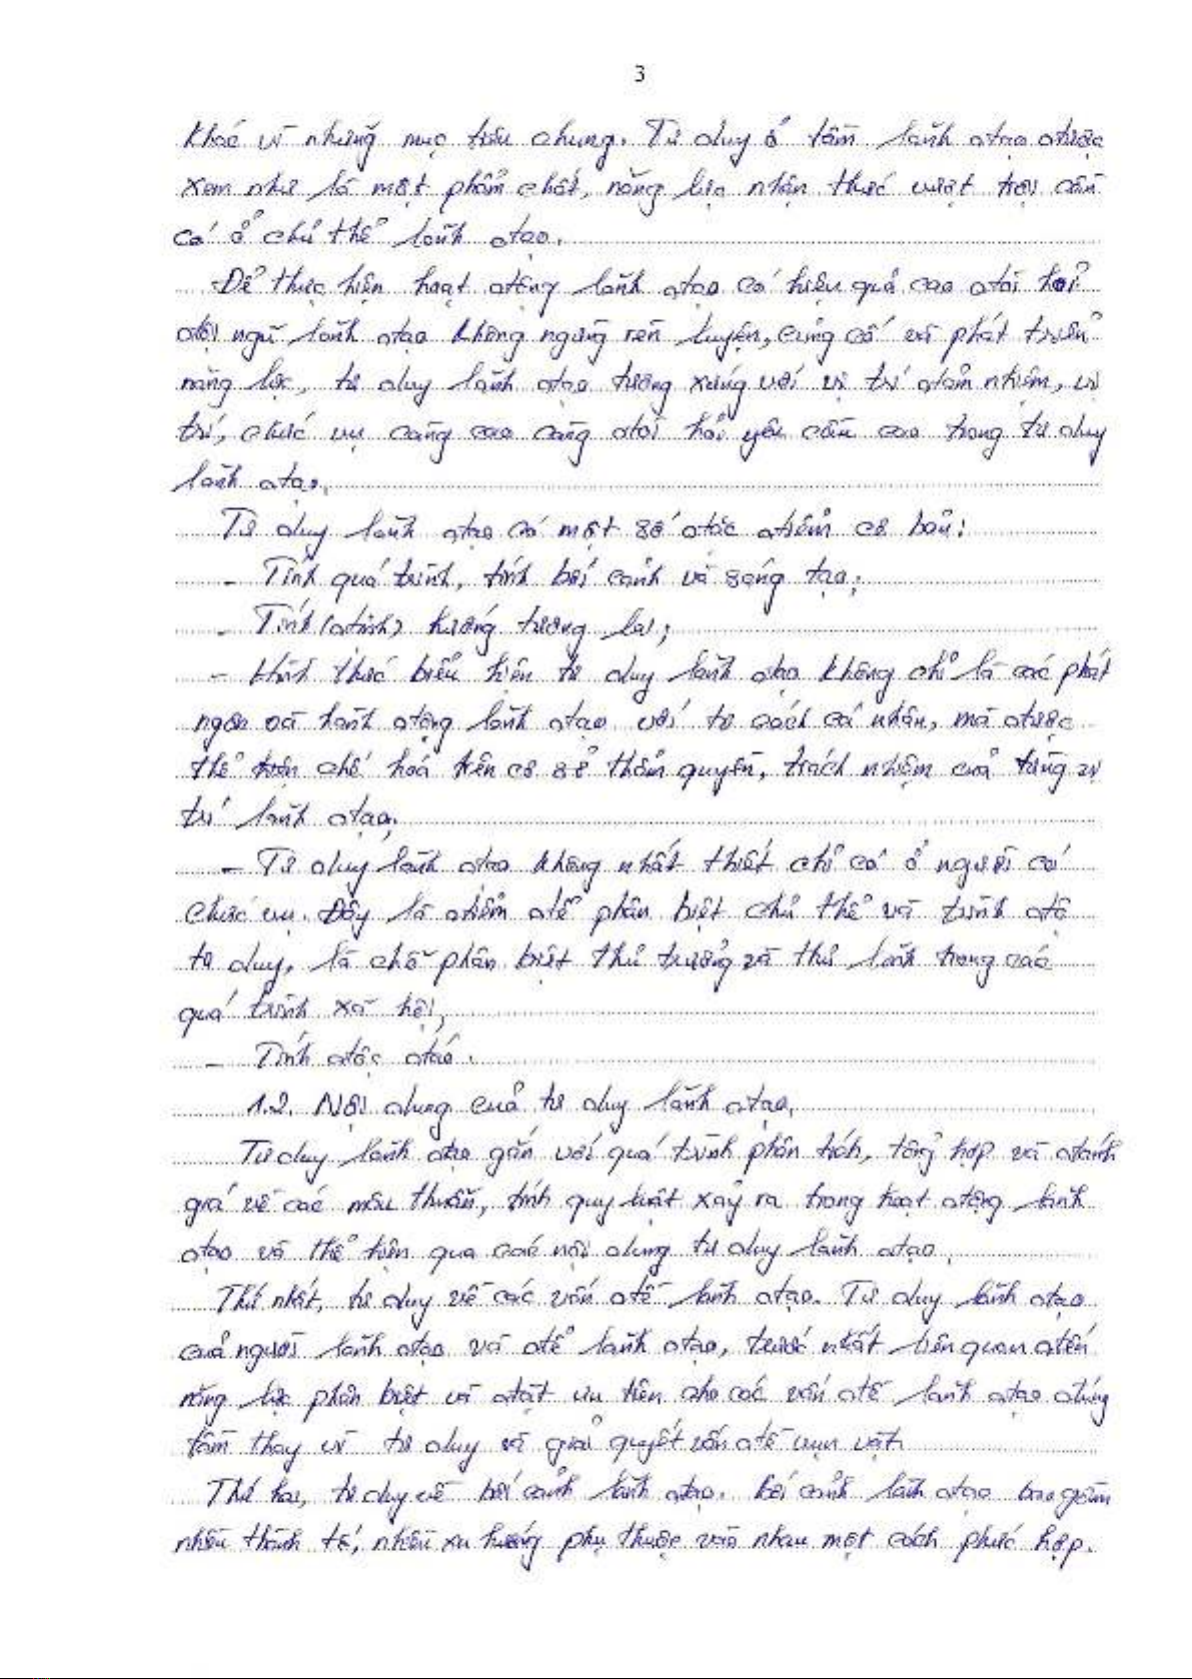 3
khác vì những mục tiêu chung. Tư duy ở tầm lãnh đạo được
xem như là một phẩm chất, năng lực nhận thức vượt trội cần
có ở chủ thể lãnh đạo.
Để thực hiện hoạt động lãnh đạo có hiệu quả cao đòi hỏi
đội ngũ lãnh đạo không ngừng rèn luyện, củng cố và phát triển
năng lực, tư duy lãnh đạo tương xứng với vị trí đảm nhiệm, vị
trí, chức vụ càng cao càng đòi hỏi yêu cầu cao trong tư duy
lãnh đạo.
Tư duy lãnh đạo có một số đặc điểm cơ bản:
- Tính quá trình, tính bối cảnh và sáng tạo;
- Tính (định) hướng tương lai;
- Hình thức biểu hiện tư duy lãnh đạo không chỉ là các phát
ngôn và hành động lãnh đạo với tư cách cá nhân, mà được
thể hiện chế hoá trên cơ sở thẩm quyền, trách nhiệm của từng vị
trí lãnh đạo;
- Tư duy lãnh đạo không nhất thiết chỉ có ở người có
chức vụ. Đây là điểm để phân biệt chủ thể và trình độ
tư duy, là chỗ phân biệt thủ trưởng và thủ lĩnh trong các
quá trình xã hội;
- Tính độc đáo.
1.2. Nội dung của tư duy lãnh đạo.
Tư duy lãnh đạo gắn với quá trình phân tích, tổng hợp và đánh
giá về các mâu thuẫn, tính quy luật xảy ra trong hoạt động lãnh
đạo và thể hiện qua các nội dung tư duy lãnh đạo.
Thứ nhất, tư duy về các vấn đề lãnh đạo. Tư duy lãnh đạo
của người lãnh đạo và để lãnh đạo, trước nhất liên quan đến
năng lực phân biệt và đặt ưu tiên cho các vấn đề lãnh đạo đúng
tầm thay vì tư duy và giải quyết vấn đề vụn vặt.
Thứ hai, tư duy về bối cảnh lãnh đạo. Bối cảnh lãnh đạo bao gồm
nhiều thành tố, nhiều xu hướng phụ thuộc vào nhau một cách phức hợp.